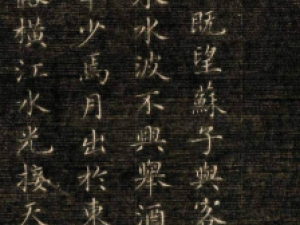 既望蘇子與客
水波不興舉酒
少焉月出於東
橫江水光接天